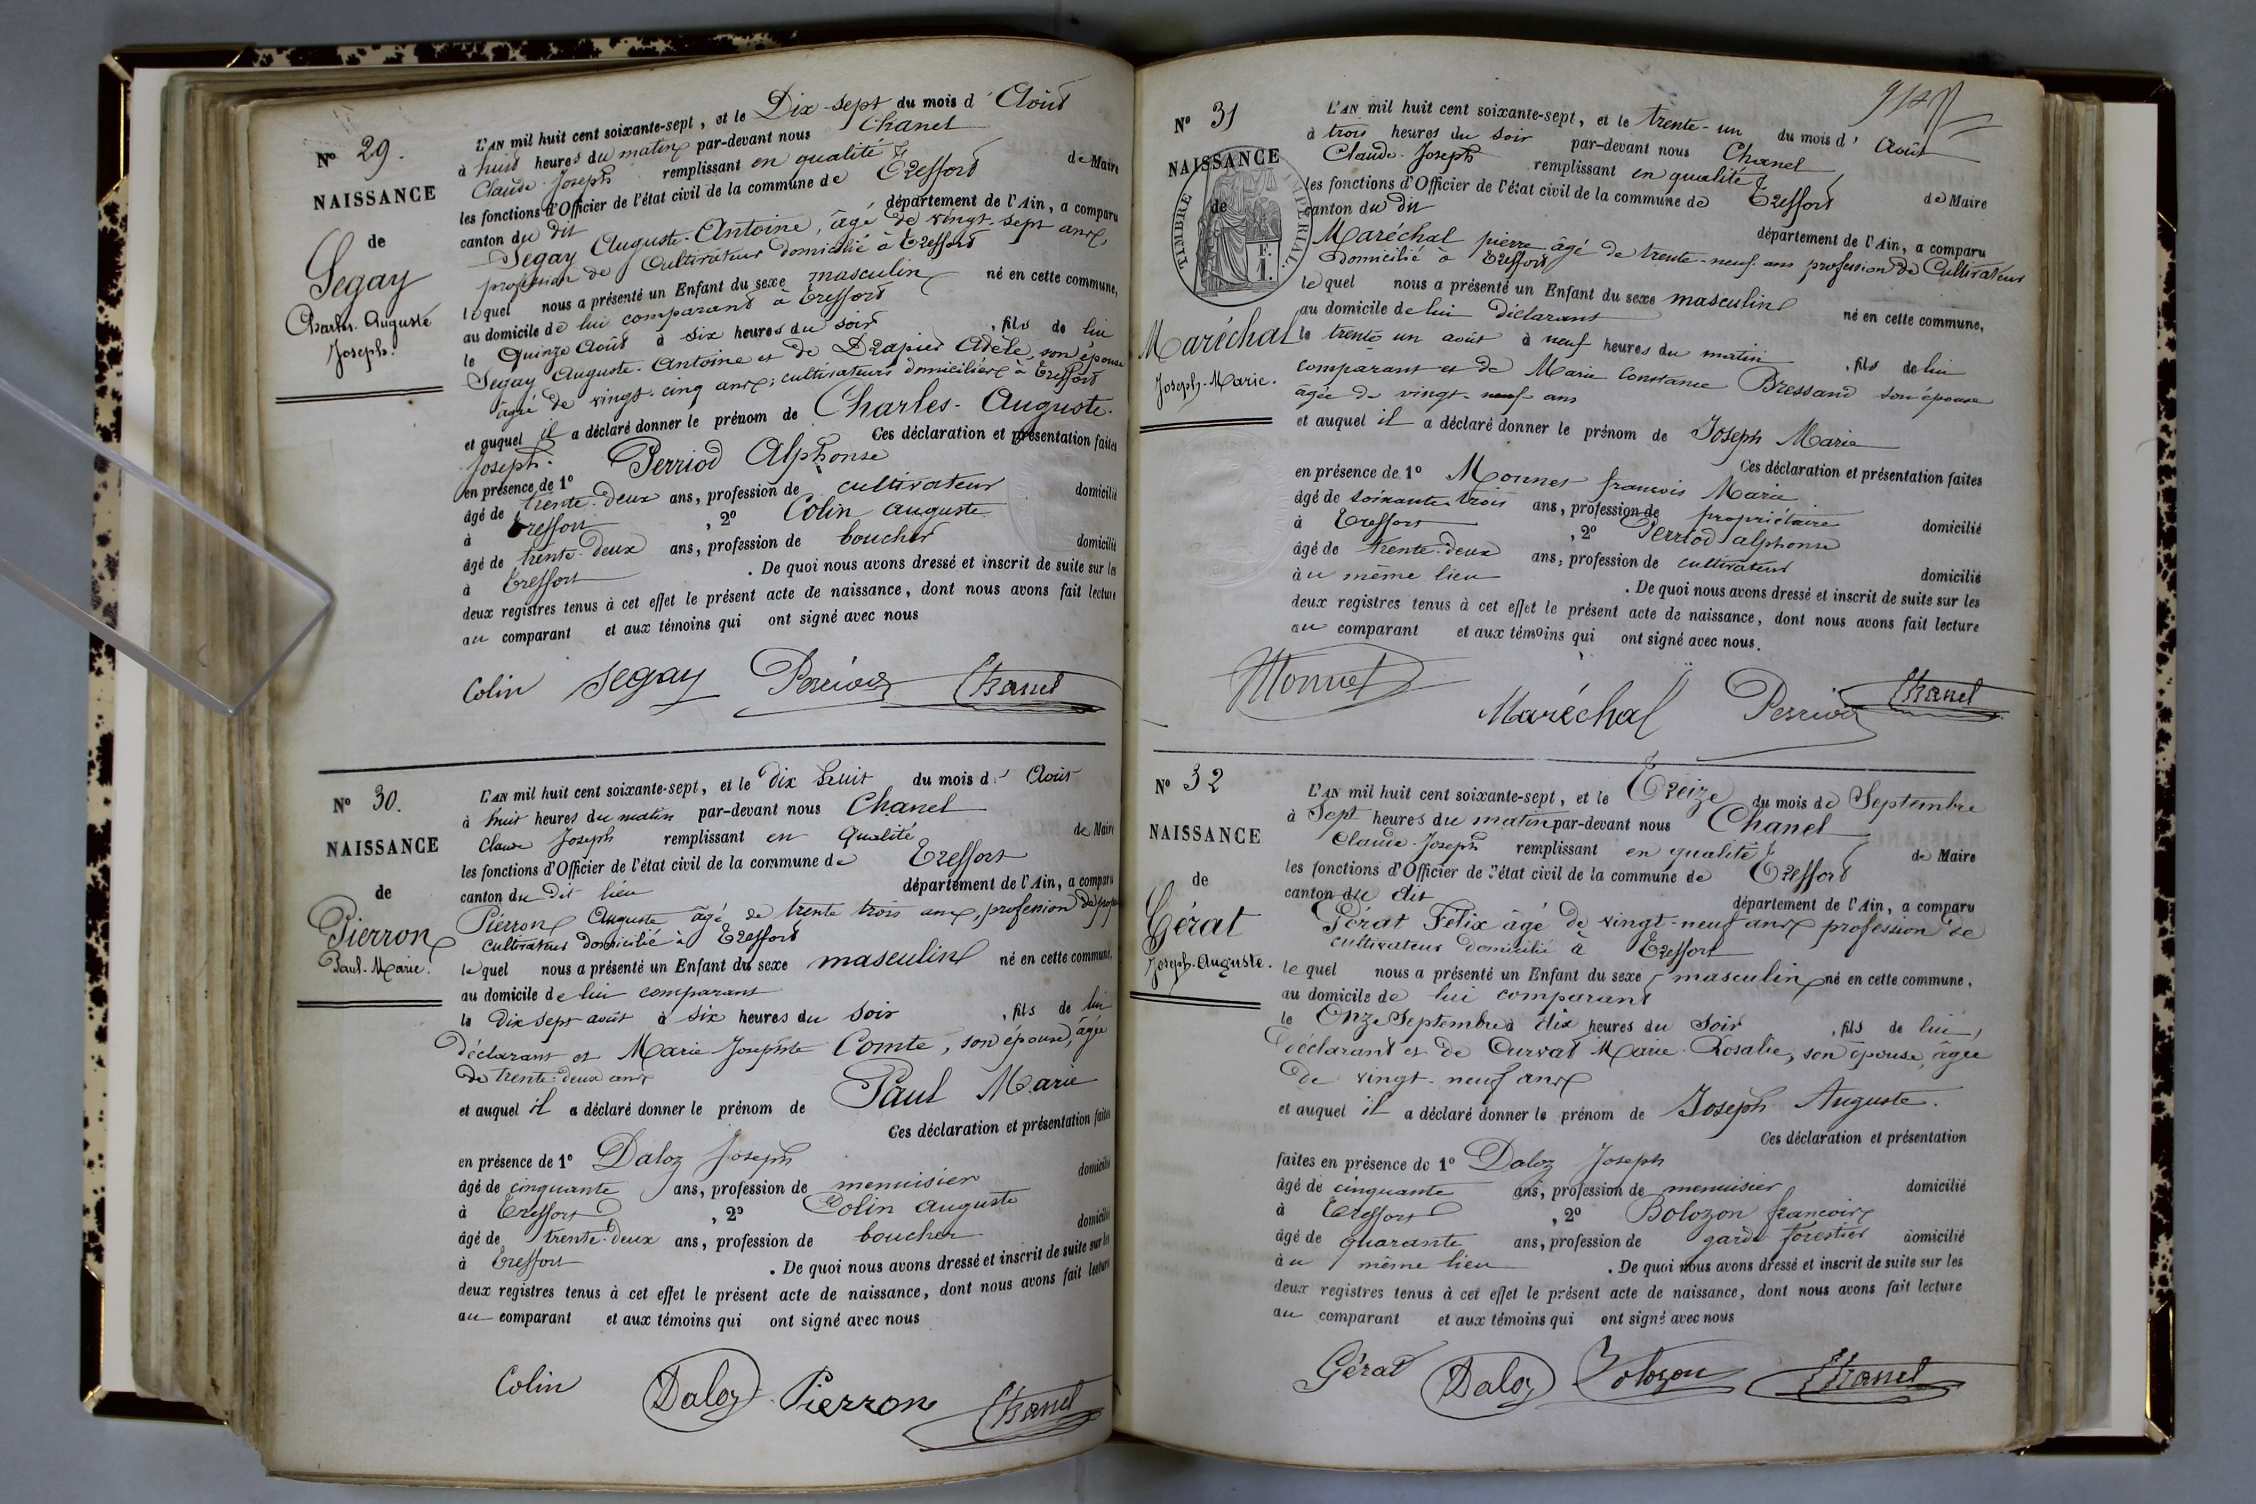 N° 29.
NAISSANCE
de
Segay
Charles-Auguste
Joseph.
L'AN mil huit cent soixante-sept, et le Dix-sept du mois d'Août
à huit heures du matin par-devant nous Chanel
Claude-Joseph remplissant en qualité de Maire
les fonctions d'Officier de l'état civil de la commune de Treffort
canton du dit département de l'Ain, a comparu
Segay Auguste-Antoine, âgé de vingt-sept ans,
profession de Cultivateur domicilié à Treffort
lequel nous a présenté un Enfant du sexe masculin né en cette commune,
au domicile de lui comparant à Treffort
le Quinze Août à six heures du soir, fils de lui
Segay Auguste-Antoine et de Drapier Adèle, son épouse
âgée de vingt-cinq ans, cultivateurs domiciliés à Treffort
et auquel il a déclaré donner le prénom de Charles-Auguste-
Joseph. Ces déclaration et présentation faites
en présence de 1° Perriod Alphonse
âgé de trente-deux ans, profession de cultivateur domicilié
à Treffort, 2° Colin auguste
âgé de trente-deux ans, profession de boucher domicilié
à Treffort. De quoi nous avons dressé et inscrit de suite sur les
deux registres tenus à cet effet le présent acte de naissance, dont nous avons fait lecture
au comparant et aux témoins qui ont signé avec nous
Colin Segay Perriod Chanel
N° 30.
NAISSANCE
de
Pierron
Paul-Marie.
L'AN mil huit cent soixante-sept, et le dix huit du mois d'Août
à huit heures du matin par-devant nous Chanel
Claude Joseph remplissant en qualité de Maire
les fonctions d'Officier de l'état civil de la commune de Treffort
canton du Dit lieu département de l'Ain, a comparu
Pierron Auguste âgé de trente trois ans, profession de
cultivateur domicilié à Treffort
lequel nous a présenté un Enfant du sexe masculin né en cette commune,
au domicile de lui comparant
le dix sept août à six heures du soir, fils de lui
déclarant et Marie Josephte Comte, son épouse, âgée
de trente-deux ans
et auquel il a déclaré donner le prénom de Paul Marie
Ces déclaration et présentation faites
en présence de 1° Daloz Joseph
âgé de cinquante ans, profession de menuisier domicilié
à Treffort, 2° Colin auguste
âgé de trente-deux ans, profession de boucher domicilié
à Treffort. De quoi nous avons dressé et inscrit de suite sur les
deux registres tenus à cet effet le présent acte de naissance, dont nous avons fait lecture
au comparant et aux témoins qui ont signé avec nous
Colin Daloz Pierron Chanel
N° 31
NAISSANCE
de
TIMBRE IMPÉRIAL
Maréchal
Joseph-Marie.
L'AN mil huit cent soixante-sept, et le trente-un du mois d'Août
à trois heures du soir par-devant nous Chanel
Claude-Joseph remplissant en qualité de Maire
les fonctions d'Officier de l'état civil de la commune de Treffort
canton du dit département de l'Ain, a comparu
Maréchal pierre âgé de trente-neuf ans profession de Cultivateur
domicilié à Treffort
lequel nous a présenté un Enfant du sexe masculin né en cette commune,
au domicile de lui déclarant
le trente un août à neuf heures du matin, fils de lui
comparant et de Marie Constance Bressand son épouse
âgée de vingt-neuf ans
et auquel il a déclaré donner le prénom de Joseph Marie
Ces déclaration et présentation faites
en présence de 1° Monnet francois Marie
âgé de soixante trois ans, profession de propriétaire domicilié
à Treffort, 2° Perriod alphonse
âgé de trente-deux ans, profession de cultivateur domicilié
au même lieu. De quoi nous avons dressé et inscrit de suite sur les
deux registres tenus à cet effet le présent acte de naissance, dont nous avons fait lecture
au comparant et aux témoins qui ont signé avec nous.
Monnet Maréchal Perriod Chanel
N° 32
NAISSANCE
de
Gérat
Joseph-Auguste.
L'AN mil huit cent soixante-sept, et le Treize du mois de Septembre
à Sept heures du matin par-devant nous Chanel
Claude-Joseph remplissant en qualité de Maire
les fonctions d'Officier de l'état civil de la commune de Treffort
canton du dit département de l'Ain, a comparu
Gérat Félix âgé de vingt-neuf ans profession de
cultivateur domicilié à Treffort
lequel nous a présenté un Enfant du sexe masculin né en cette commune,
au domicile de lui comparant
le Onze Septembre à dix heures du Soir, fils de lui,
déclarant et de Curvat Marie Rosalie, son épouse, âgée
de vingt-neuf ans
et auquel il a déclaré donner le prénom de Joseph Auguste.
Ces déclaration et présentation
faites en présence de 1° Daloz Joseph
âgé de cinquante ans, profession de menuisier domicilié
à Treffort, 2° Bolozon francois
âgé de quarante ans, profession de garde forestier domicilié
au même lieu. De quoi nous avons dressé et inscrit de suite sur les
deux registres tenus à cet effet le présent acte de naissance, dont nous avons fait lecture
au comparant et aux témoins qui ont signé avec nous
Gérat Daloz Bolozon Chanel